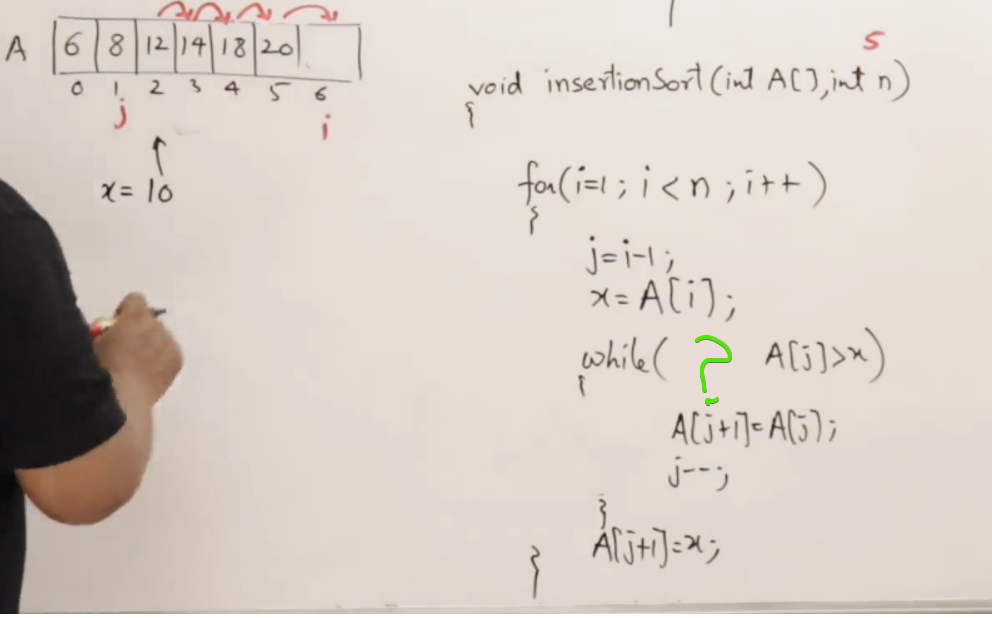 A 6 8 12 14 18 20
0 1 2 3 4 5 6
j i
x = 10
5
void insertionSort(int A[], int n)
{
for(i=1; i<n; i++)
{
j=i-1;
x=A[i];
while( ? A[j]>x)
{
A[j+1]=A[j];
j--;
}
A[j+1]=x;
}